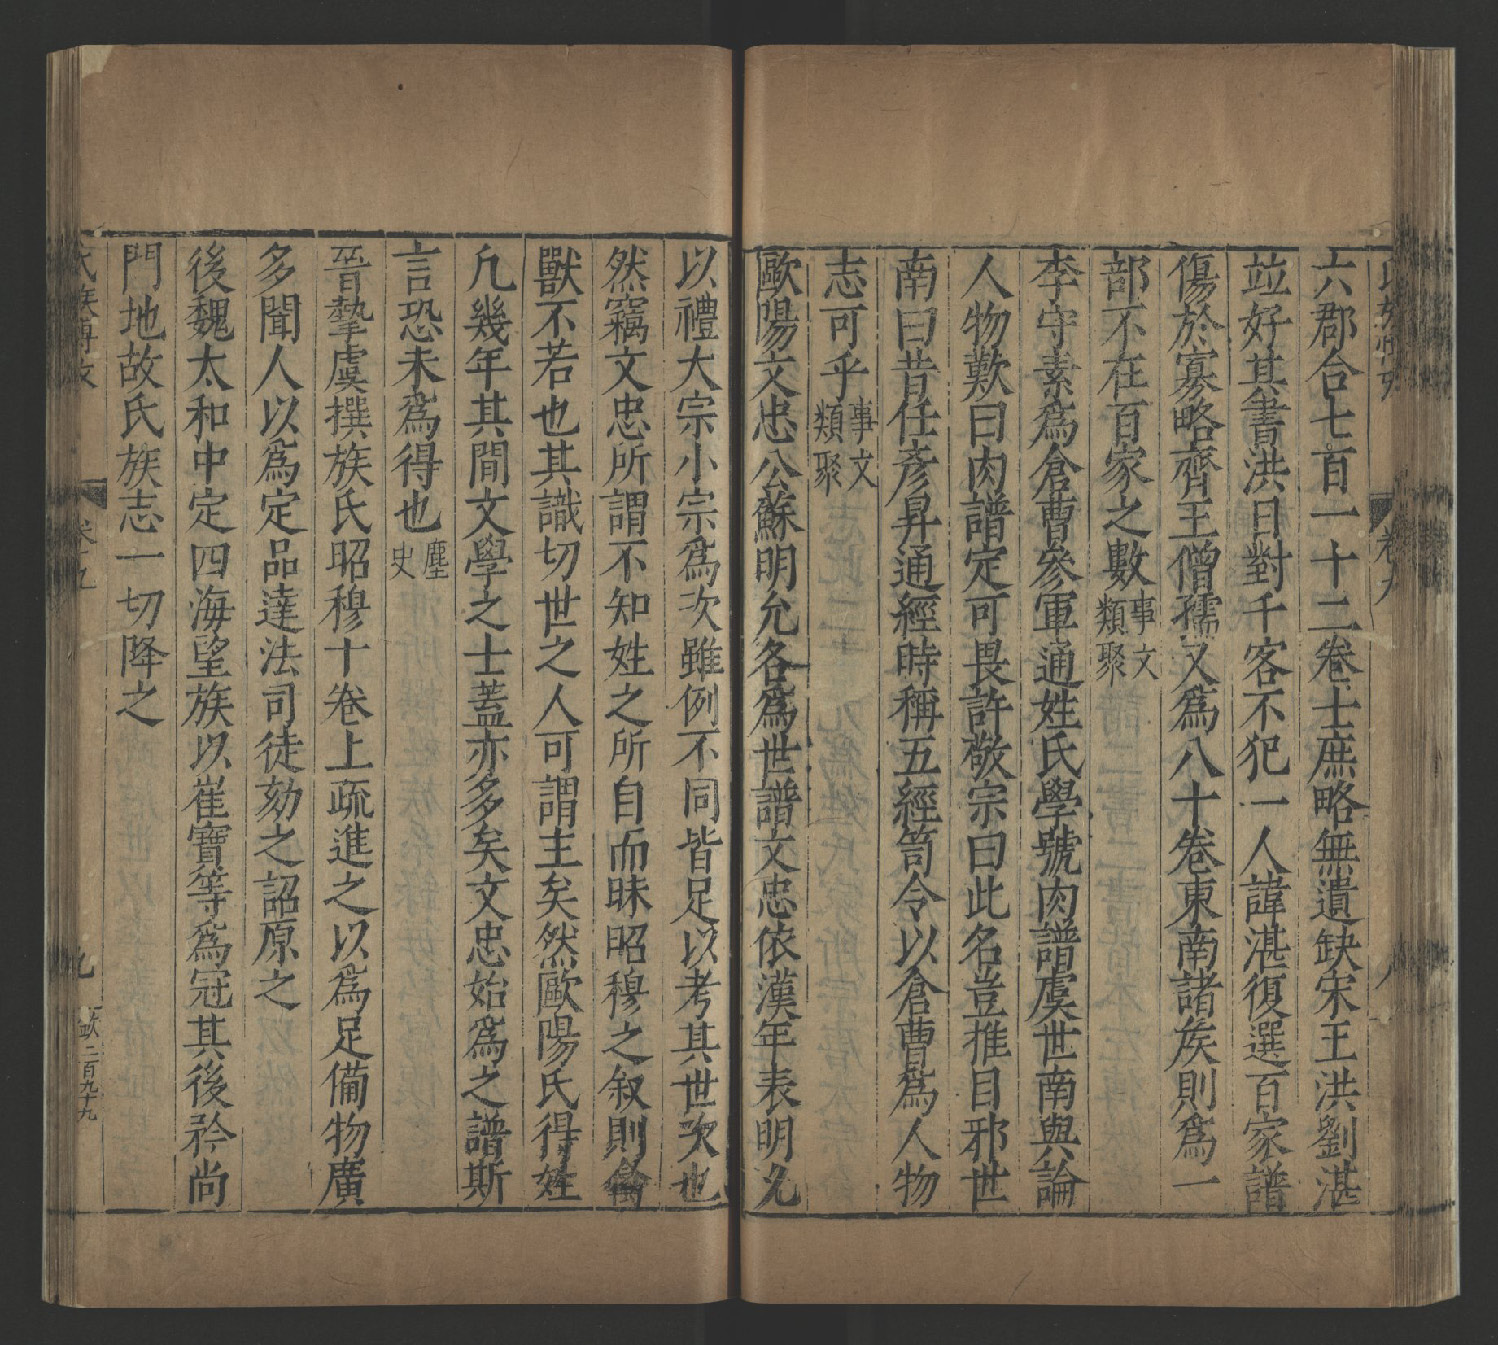 六郡合七百一十二卷士庶略無遺缺宋王洪劉湛
竝好其書洪日對千客不犯一人諱湛復選百家譜
傷於寡略齊王僧孺又爲八十卷東南諸族則爲一
部不在百家之數事文類聚
李守素爲倉曹參軍通姓氏學號肉譜虞世南與論
人物歎曰肉譜定可畏許敬宗曰此名豈推目邪世
南曰昔任彥昇通經時稱五經笥令以倉曹爲人物
志可乎事文類聚
歐陽文忠公蘇明允各爲世譜文忠依漢年表明允
以禮大宗小宗爲次雖例不同皆足以考其世次也
然竊文忠所謂不知姓之所自而昧昭穆之叙則禽
獸不若也其識切世之人可謂主矣然歐陽氏得姓
凡幾年其間文學之士蓋亦多矣文忠始爲之譜斯
言恐未爲得也塵史
晉摯虞撰族氏昭穆十卷上疏進之以爲足備物廣
多聞人以爲定品違法司徒劾之詔原之
後魏太和中定四海望族以崔寶等爲冠其後矜尚
門地故氏族志一切降之
卷十九
九
二百九十九